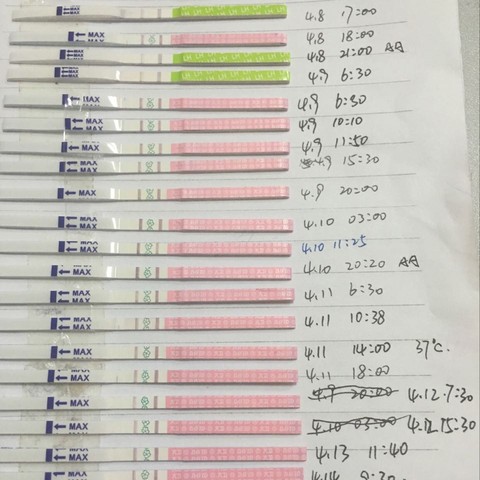 MAX 4.8 17:00
MAX 4.8 18:00
MAX 4.8 21:00
MAX 4.9 6:30
MAX 4.9 6:30
MAX 4.9 10:10
MAX 4.9 11:50
MAX 4.9 15:30
MAX 4.9 20:00
MAX 4.10 03:00
MAX 4.10 11:25
MAX 4.10 20:20
MAX 4.11 6:30
MAX 4.11 10:38
MAX 4.11 14:00 37℃.
MAX 4.11 18:00
MAX 4.9 20:00 4.12.7:30
MAX 4.10 03:00 4.12 15:30
MAX 4.13 11:40
MAX 4.14